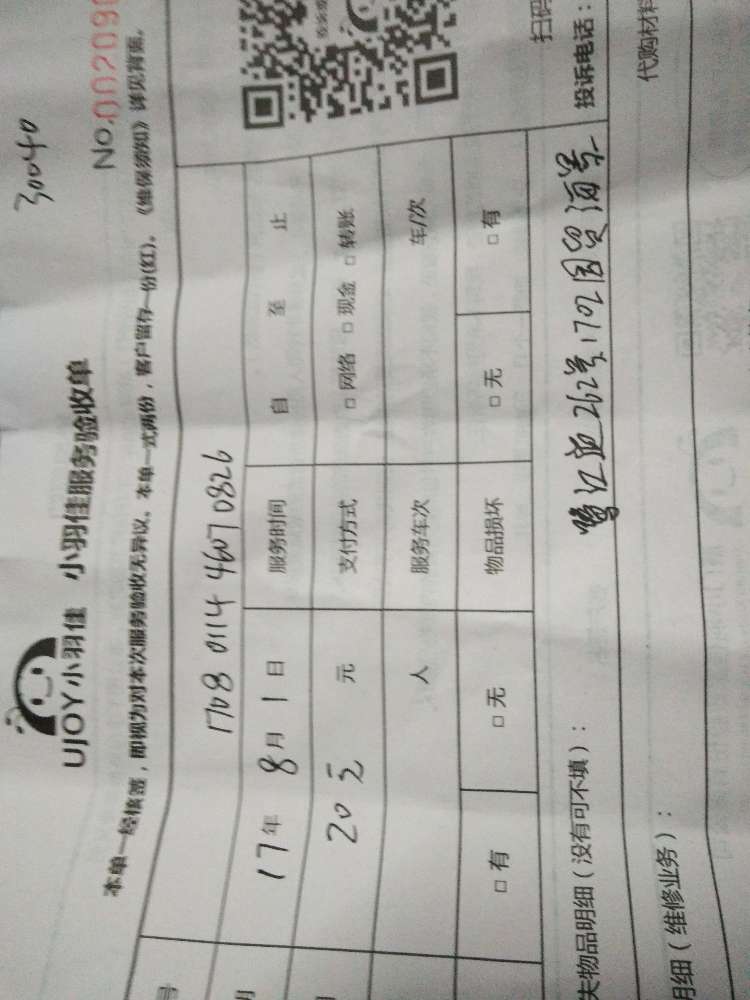 30040
UJOY小羽佳 小羽佳服务验收单
No.002090
本单一经核签，即视为对本次服务验收无异议。本单一式两份，客户留存一份(红)。《维保须知》详见背面。
号 1708 0114 4607 0826
17年 8月 1日 服务时间 自 至 止
20元 元 支付方式 □ 网络 □ 现金 □ 转账
人 服务车次 车/次
□ 有 □ 无 物品损坏 □ 无 □ 有
失物品明细（没有可不填）： 鹭江道262号1702国贸海景
扫码
投诉电话：
明细（维修业务）：
代购材料